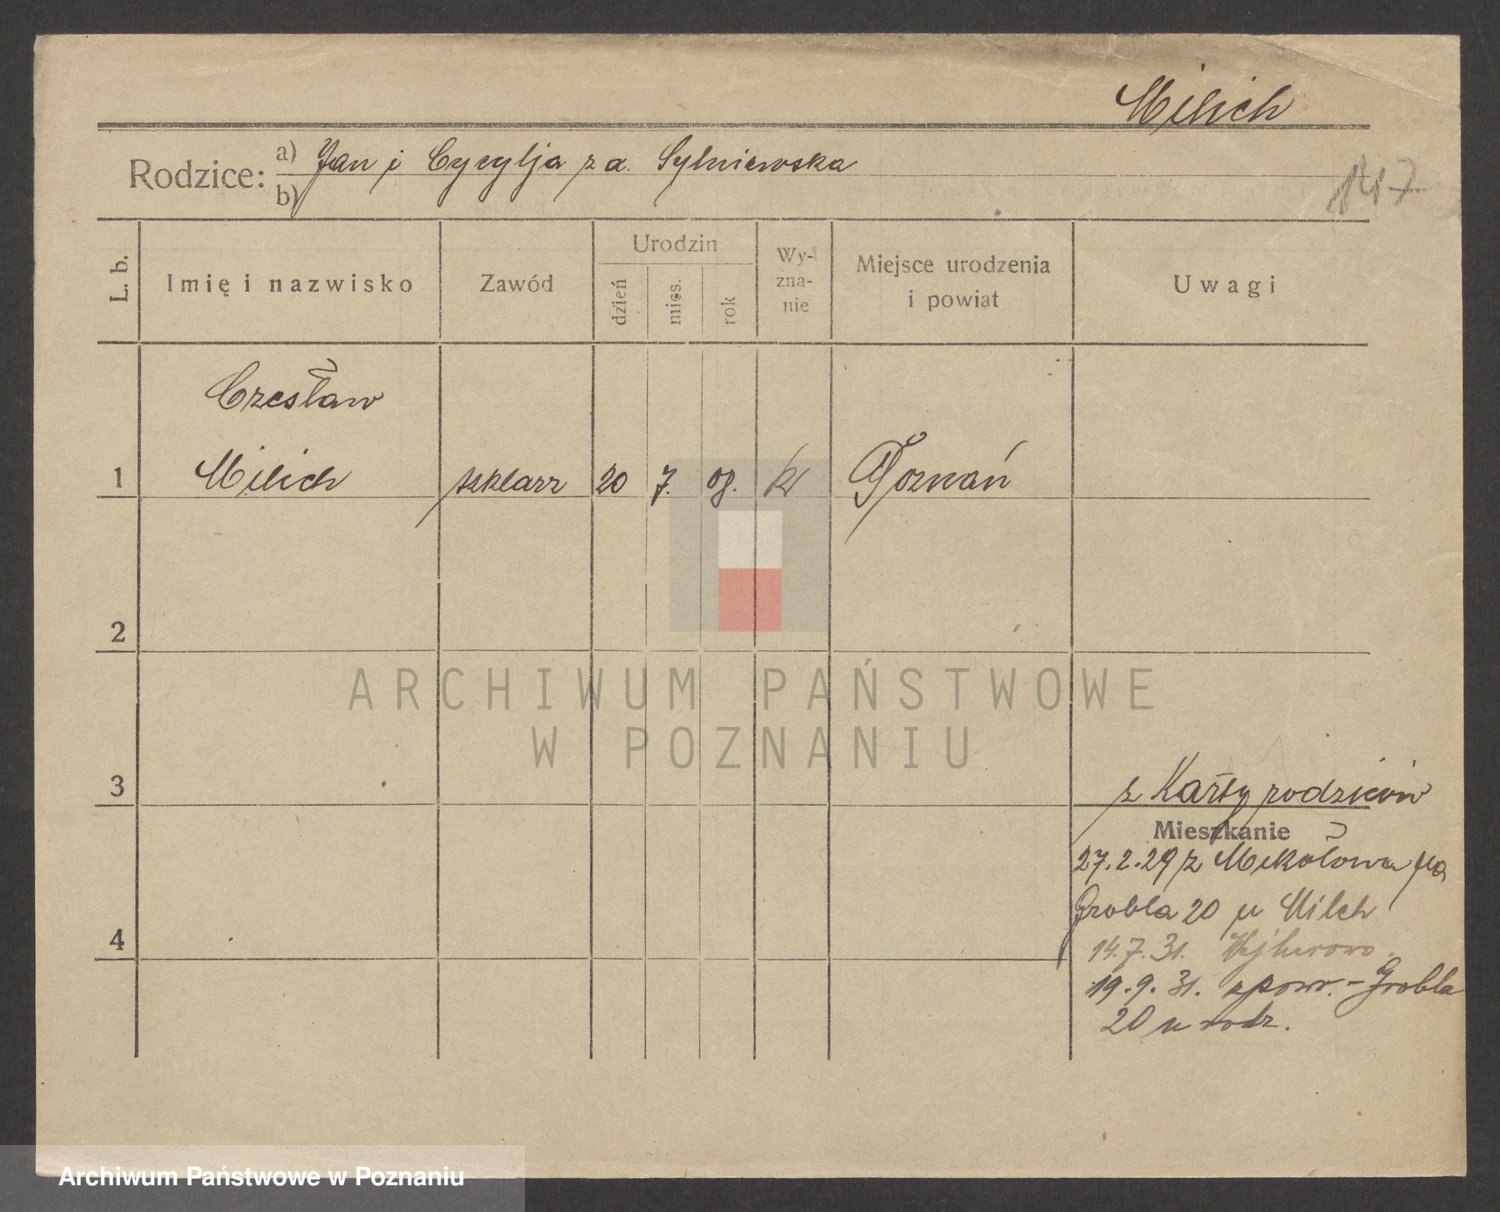 Milich
Rodzice: a) Jan i Cycylja z d. Sylniewska
b)
147
L. b. Imię i nazwisko Zawód Urodzin dzień mies. rok Wy-zna-nie Miejsce urodzenia i powiat Uwagi
Czesław
1 Milich szklarz 20 7. 08. kr Poznań
2
ARCHIWUM PAŃSTWOWE
W POZNANIU
3
z Karty rodziców
Mieszkanie
27.2.29 z Mikołowa na
Grobla 20 u Milch
4
14.7.31. Wejherowo
19.9.31. spowr. - Grobla
20 u rodz.
Archiwum Państwowe w Poznaniu